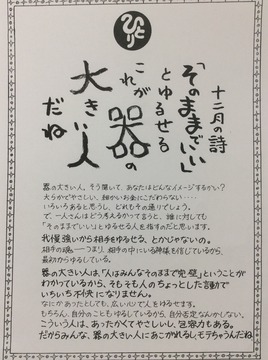 十二月の詩
「そのままでいい」
とゆるせる
これが器の
大きい人
だね
器の大きい人。そう聞いて、あなたはどんなイメージするかい？
大らかでやさしい、細かいお金にこだわらない‥‥
いろいろあると思うし、どれもその通りでしょう。
で、一人さんはどう考えるかって言うと、誰に対しても
「そのままでいい」とゆるせる人を指すのだと思います。
我慢強いから相手をゆるせる、とかじゃないの。
相手の魂――つまり、相手の中にいる神様を信じているから、
最初からゆるしている。
器の大きい人は、「人はみんなそのままで完璧」ということが
わかっているから、そもそも人のちょっとした言動で
いちいち不快になりません。
なにかあったとしても、広い心で人をゆるせます。
もちろん、自分のこともゆるしているから、自分否定なんかしない。
こういう人は、あったかくてやさしいし、包容力もある。
だからみんな、器の大きい人にあこがれるし、モテちゃうんだね